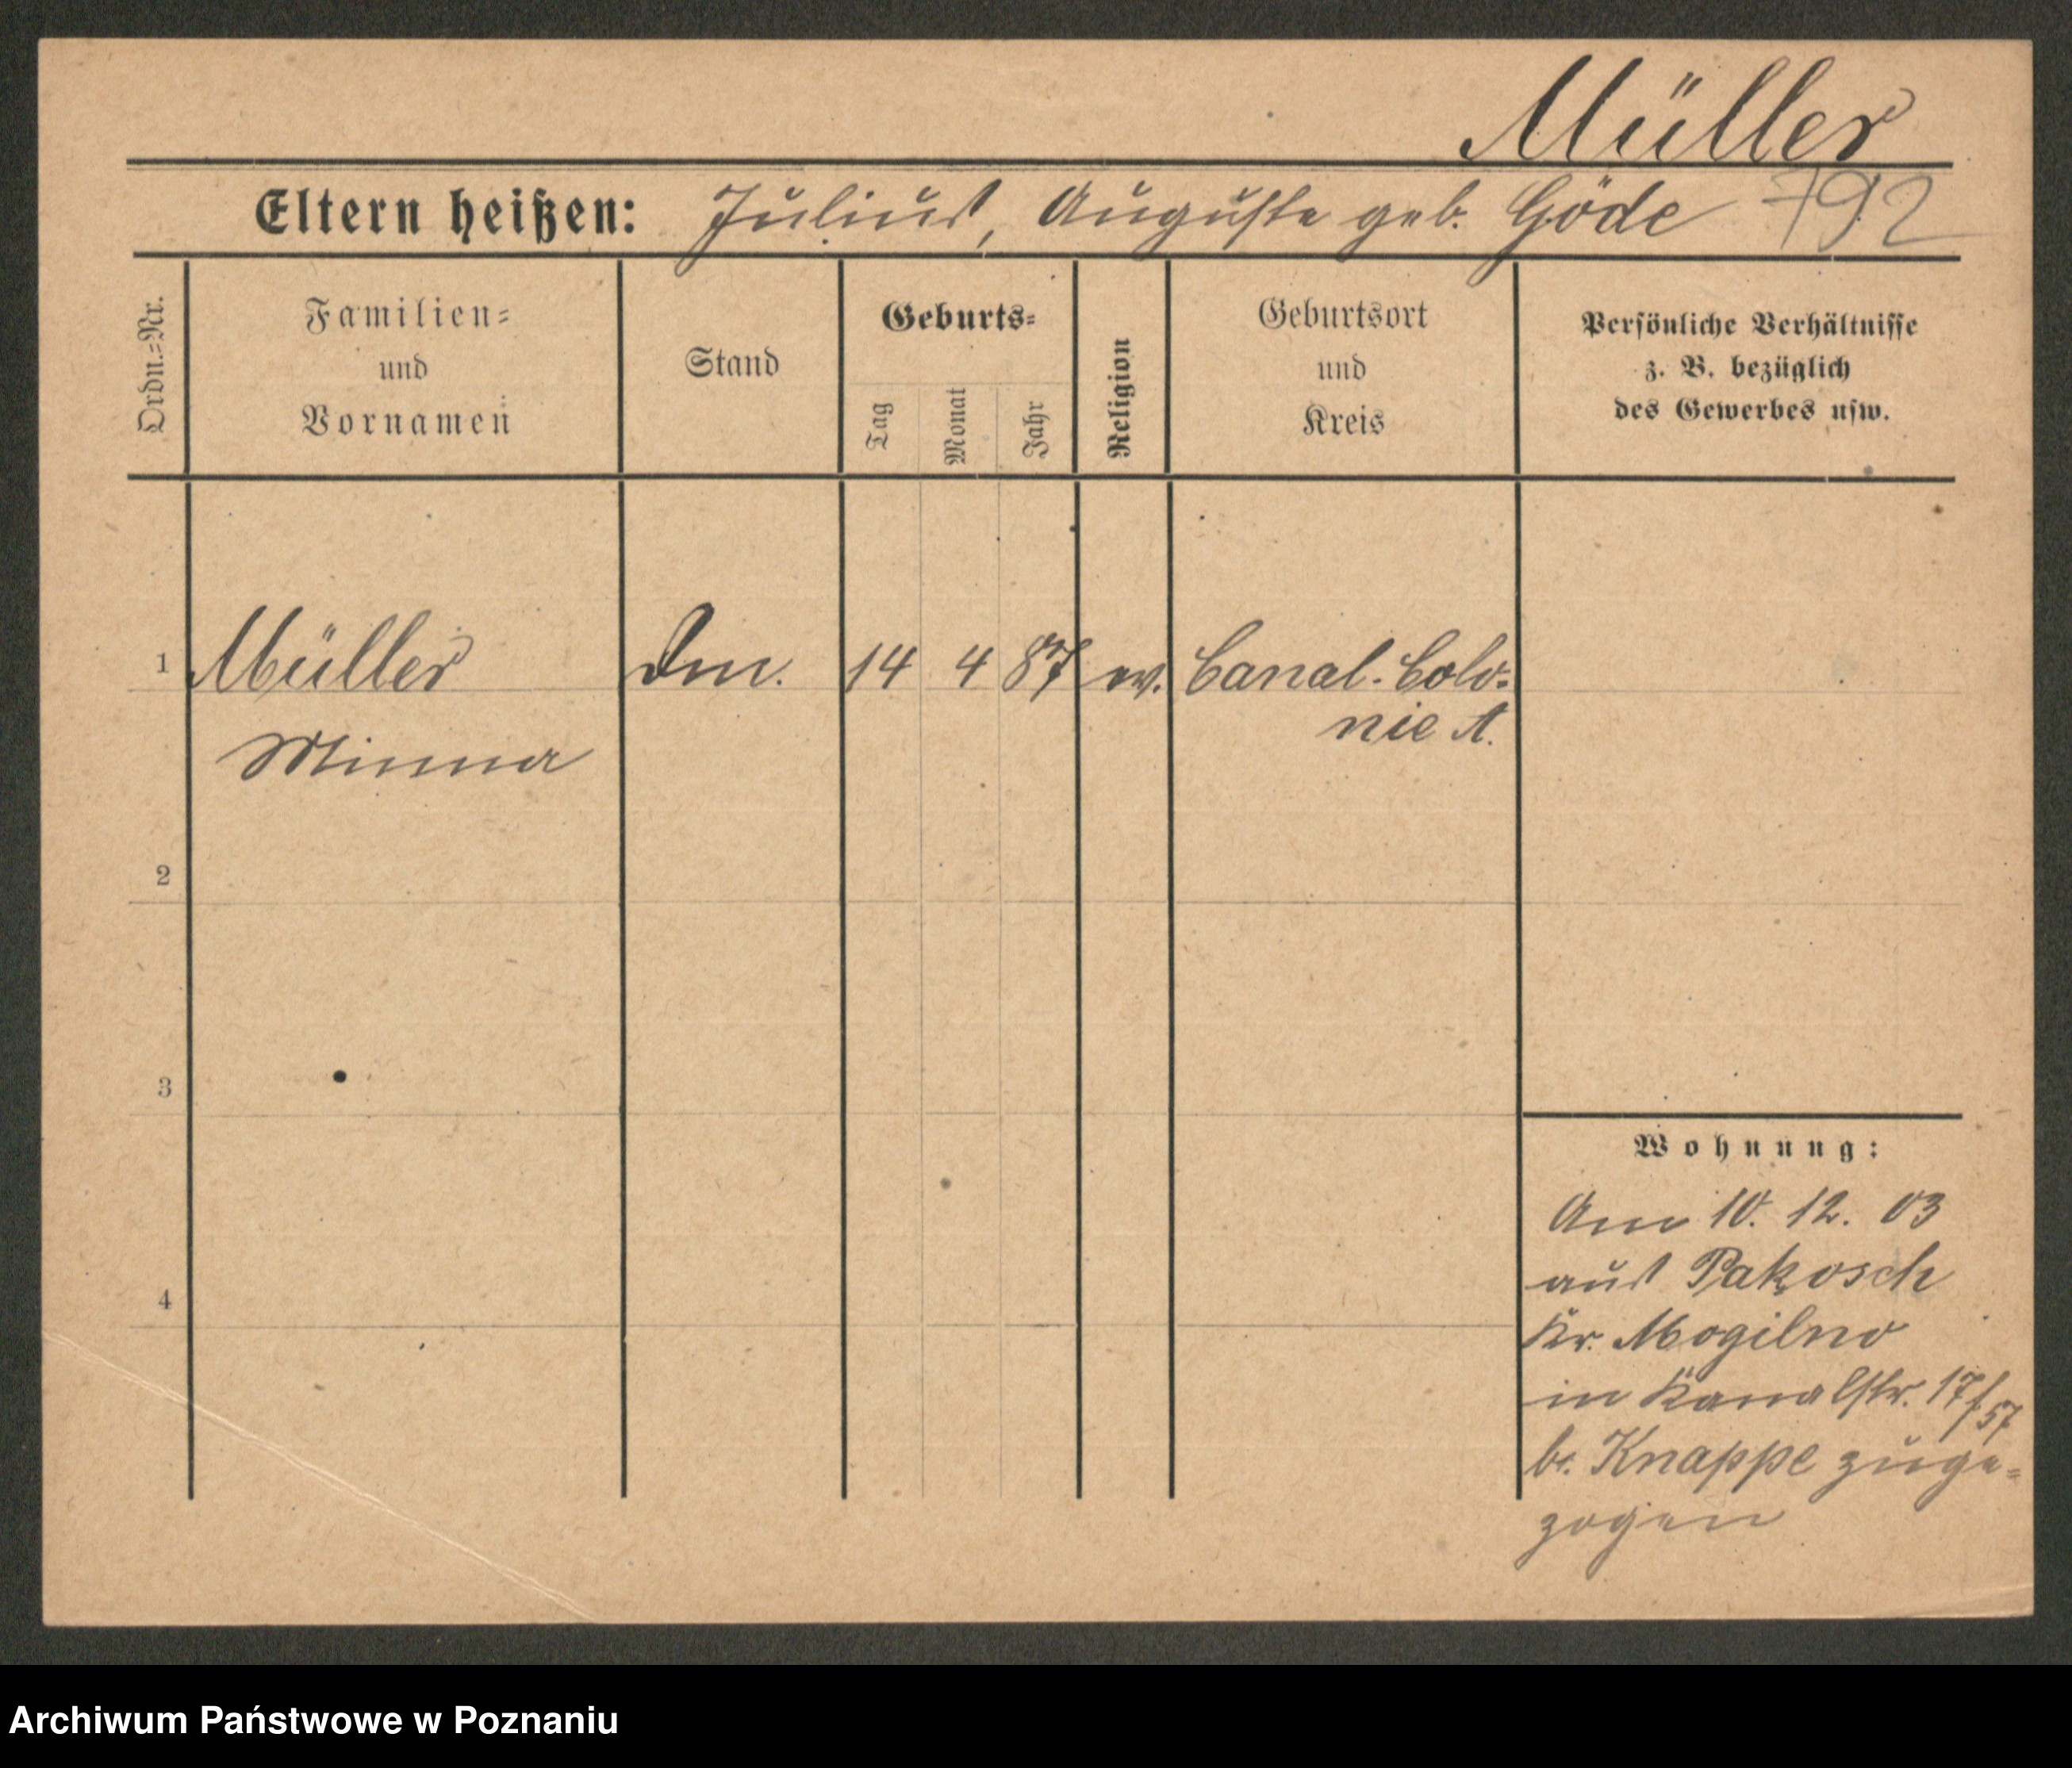 Müller
Eltern heißen: Julius, Auguste geb. Göde 792
Ordn.=Nr.
Familien=
und
Vornamen
Stand
Geburts=
Tag
Monat
Jahr
Religion
Geburtsort
und
Kreis
Persönliche Verhältnisse
z. B. bezüglich
des Gewerbes usw.
1 Müller 14 4 87 ev. Canal-Colo-
nie A.
Minna
2
3
4
Wohnung:
Am 10. 12. 03
aus Pakosch
Kr. Mogilno
in Kanalstr. 17/57
b. Knappe zuge=
zogen
Archiwum Państwowe w Poznaniu